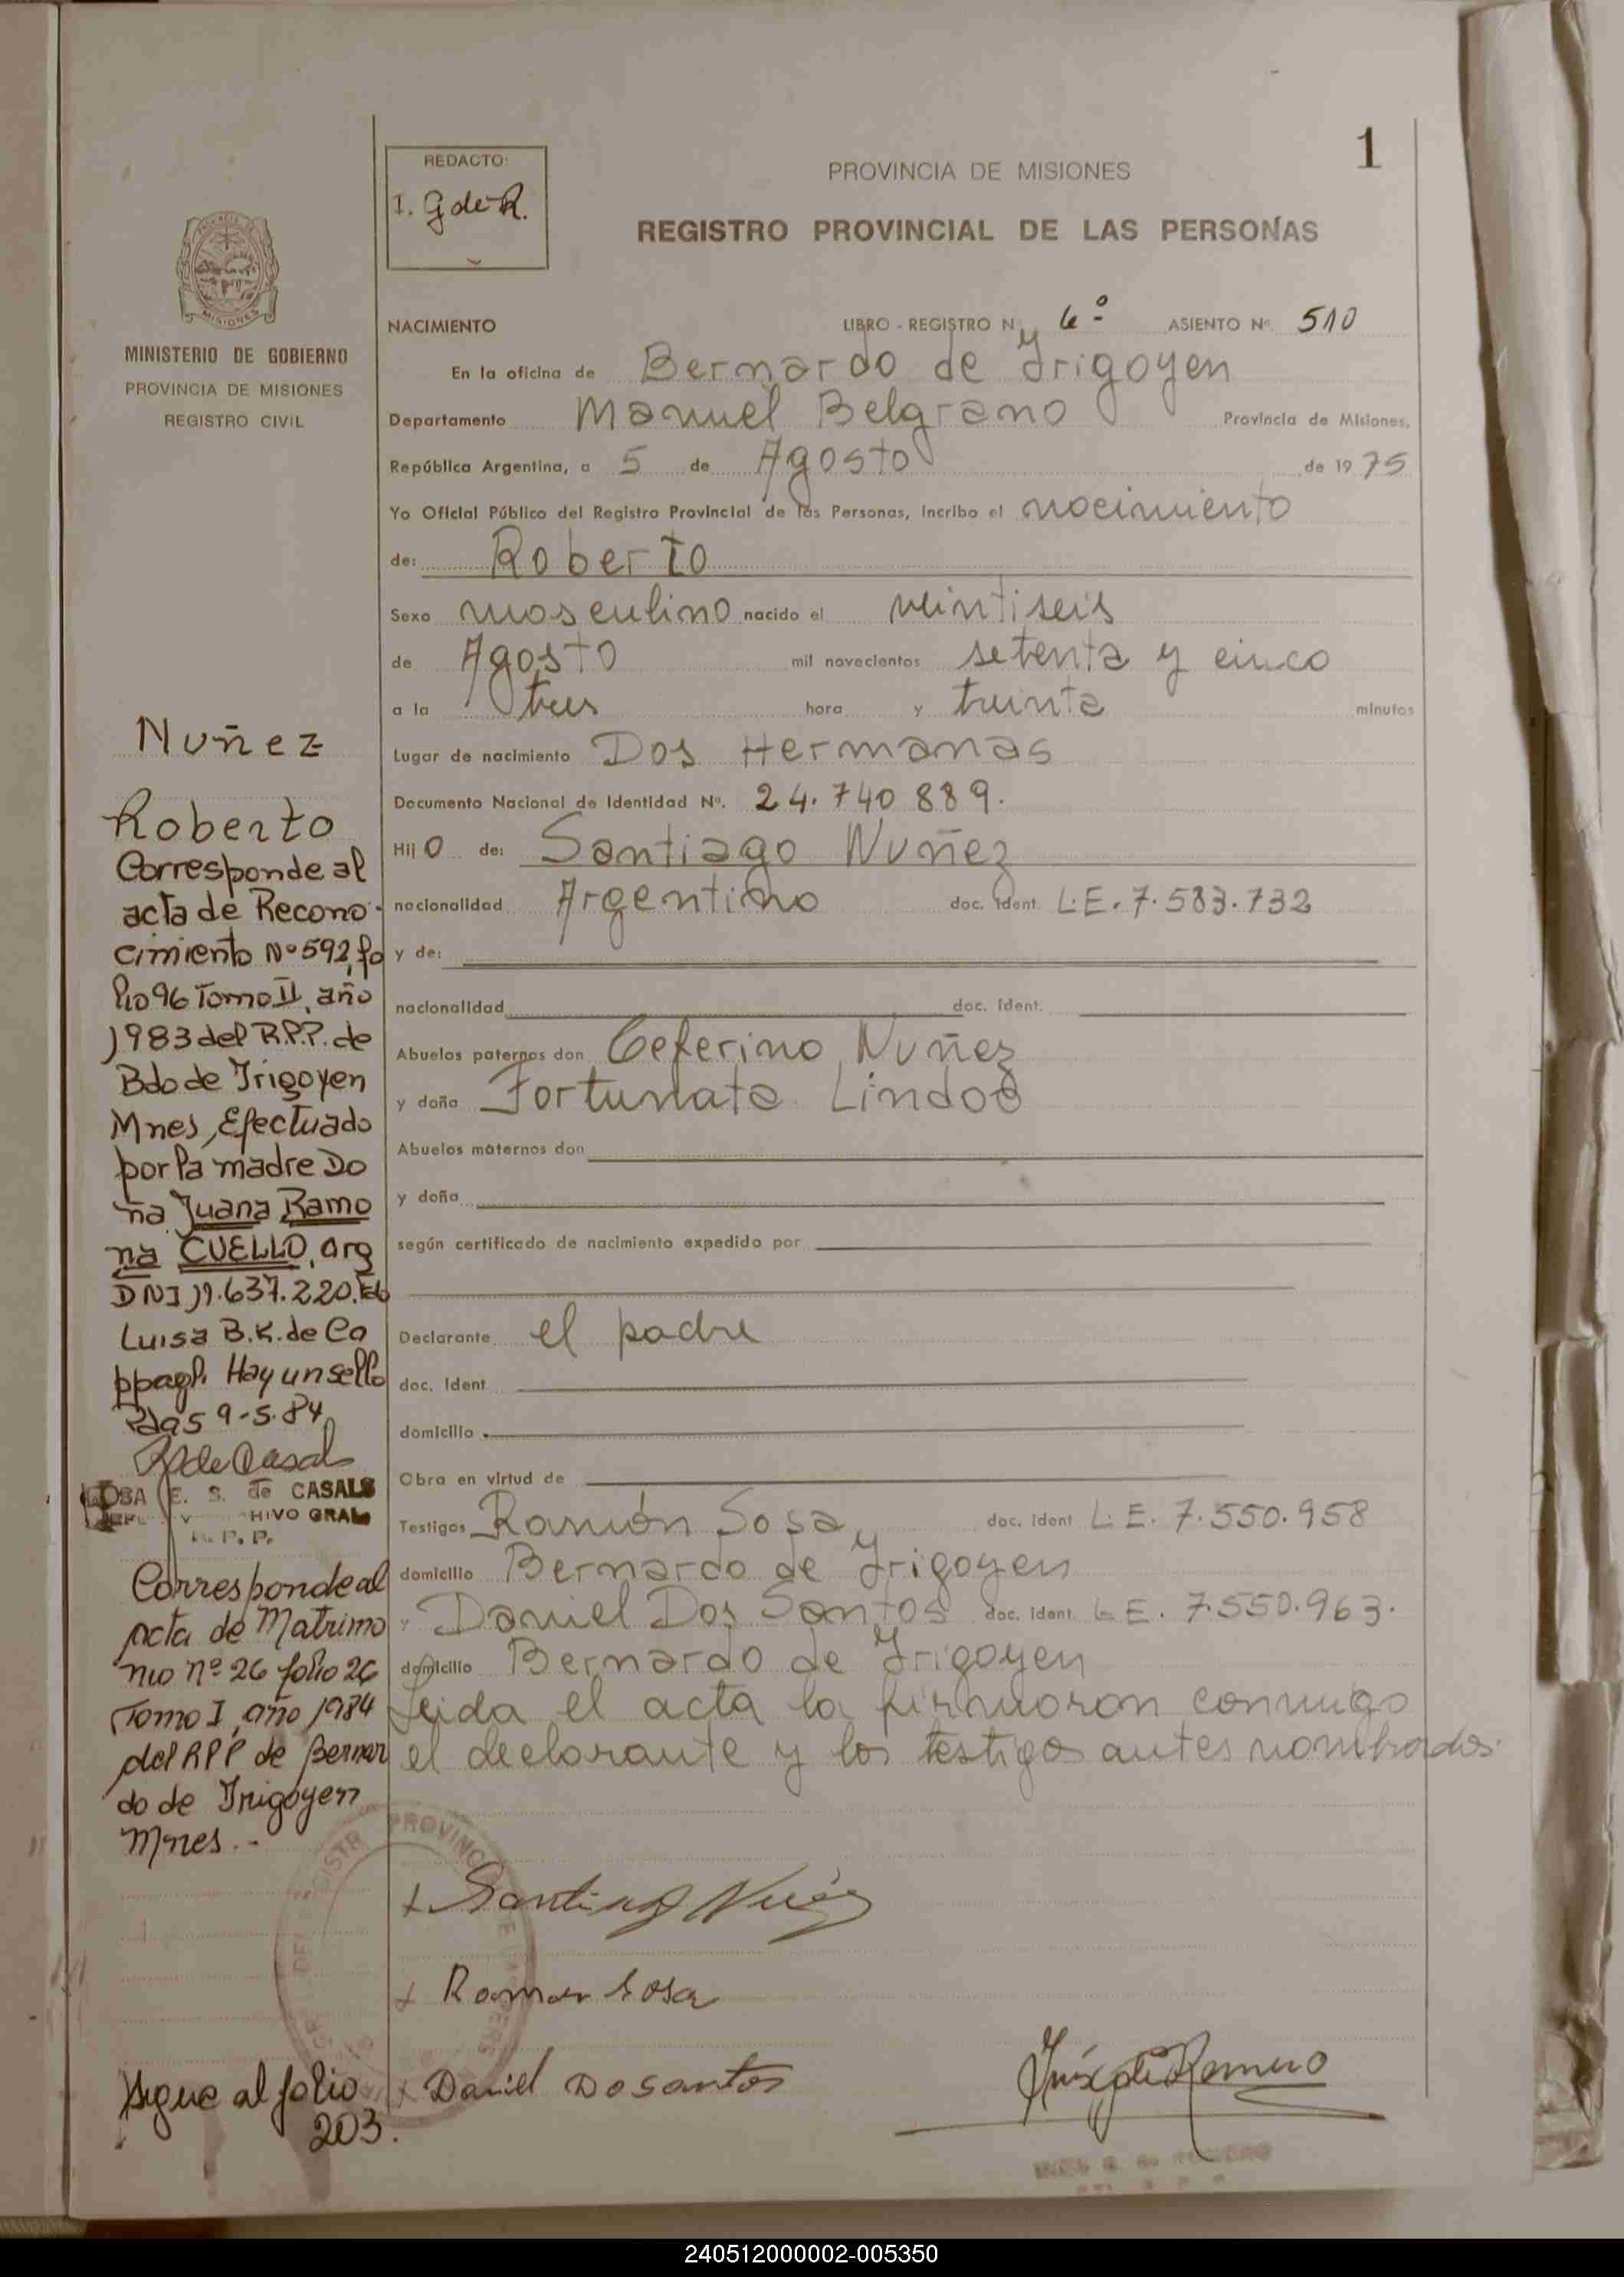 1
REDACTO:
I. G de R.
PROVINCIA DE MISIONES
REGISTRO PROVINCIAL DE LAS PERSONAS
MISIONES
MINISTERIO DE GOBIERNO
PROVINCIA DE MISIONES
REGISTRO CIVIL
NACIMIENTO LIBRO - REGISTRO N 6º ASIENTO Nº. 510
En la oficina de Bernardo de Yrigoyen
Departamento Manuel Belgrano Provincia de Misiones,
República Argentina, a 5 de Agosto de 1975
Yo Oficial Público del Registro Provincial de las Personas, incribo el nacimiento
de: Roberto
Sexo masculino nacido el veintiseis
de Agosto mil novecientos setenta y cinco
a la tres hora y treinta minutos
Lugar de nacimiento Dos Hermanas
Documento Nacional de Identidad Nº. 24.740889.
Hijo de: Santiago Nuñez
nacionalidad Argentino doc. ident. L.E. 7.583.732
y de:
nacionalidad doc. ident.
Abuelos paternos don Ceferino Nuñez
y doña Fortunata Lindoo
Abuelos maternos don
y doña
según certificado de nacimiento expedido por
Declarante el padre
doc. Ident
domicilio
Obra en virtud de
Testigos Ramón Sosa doc. ident L.E. 7.550.958
domicilio Bernardo de Yrigoyen
y Daniel Dos Santos doc. ident. L E. 7.550.963.
domicilio Bernardo de Yrigoyen
Leida el acta la firmaron conmigo
el declarante y los testigos antes nombrados.
Nuñez
Roberto
Corresponde al
acta de Recono-
cimiento Nº 592, fo
lio 96 Tomo II, año
1983 del R.P.P. de
Bdo de Yrigoyen
Mnes, Efectuado
por la madre Do
ña Juana Ramo
na CUELLO, arg
DNI 11.637.220. Fdo
Luisa B.K. de Co
ppagl. Hay un sello
Pdas 9-5-84
R de Casals
ROSA E. S. de CASALS
HIVO GRAL
R. P. P.
Corresponde al
acta de Matrimo
nio nº 26 folio 26
Tomo I, año 1984
del RPP de Bernar
do de Yrigoyen
Mnes.-
Santiago Nuñez
x Ramon Sosa
x Daniel Dosantos
Inés de Romero
Sigue al folio
203.
240512000002-005350